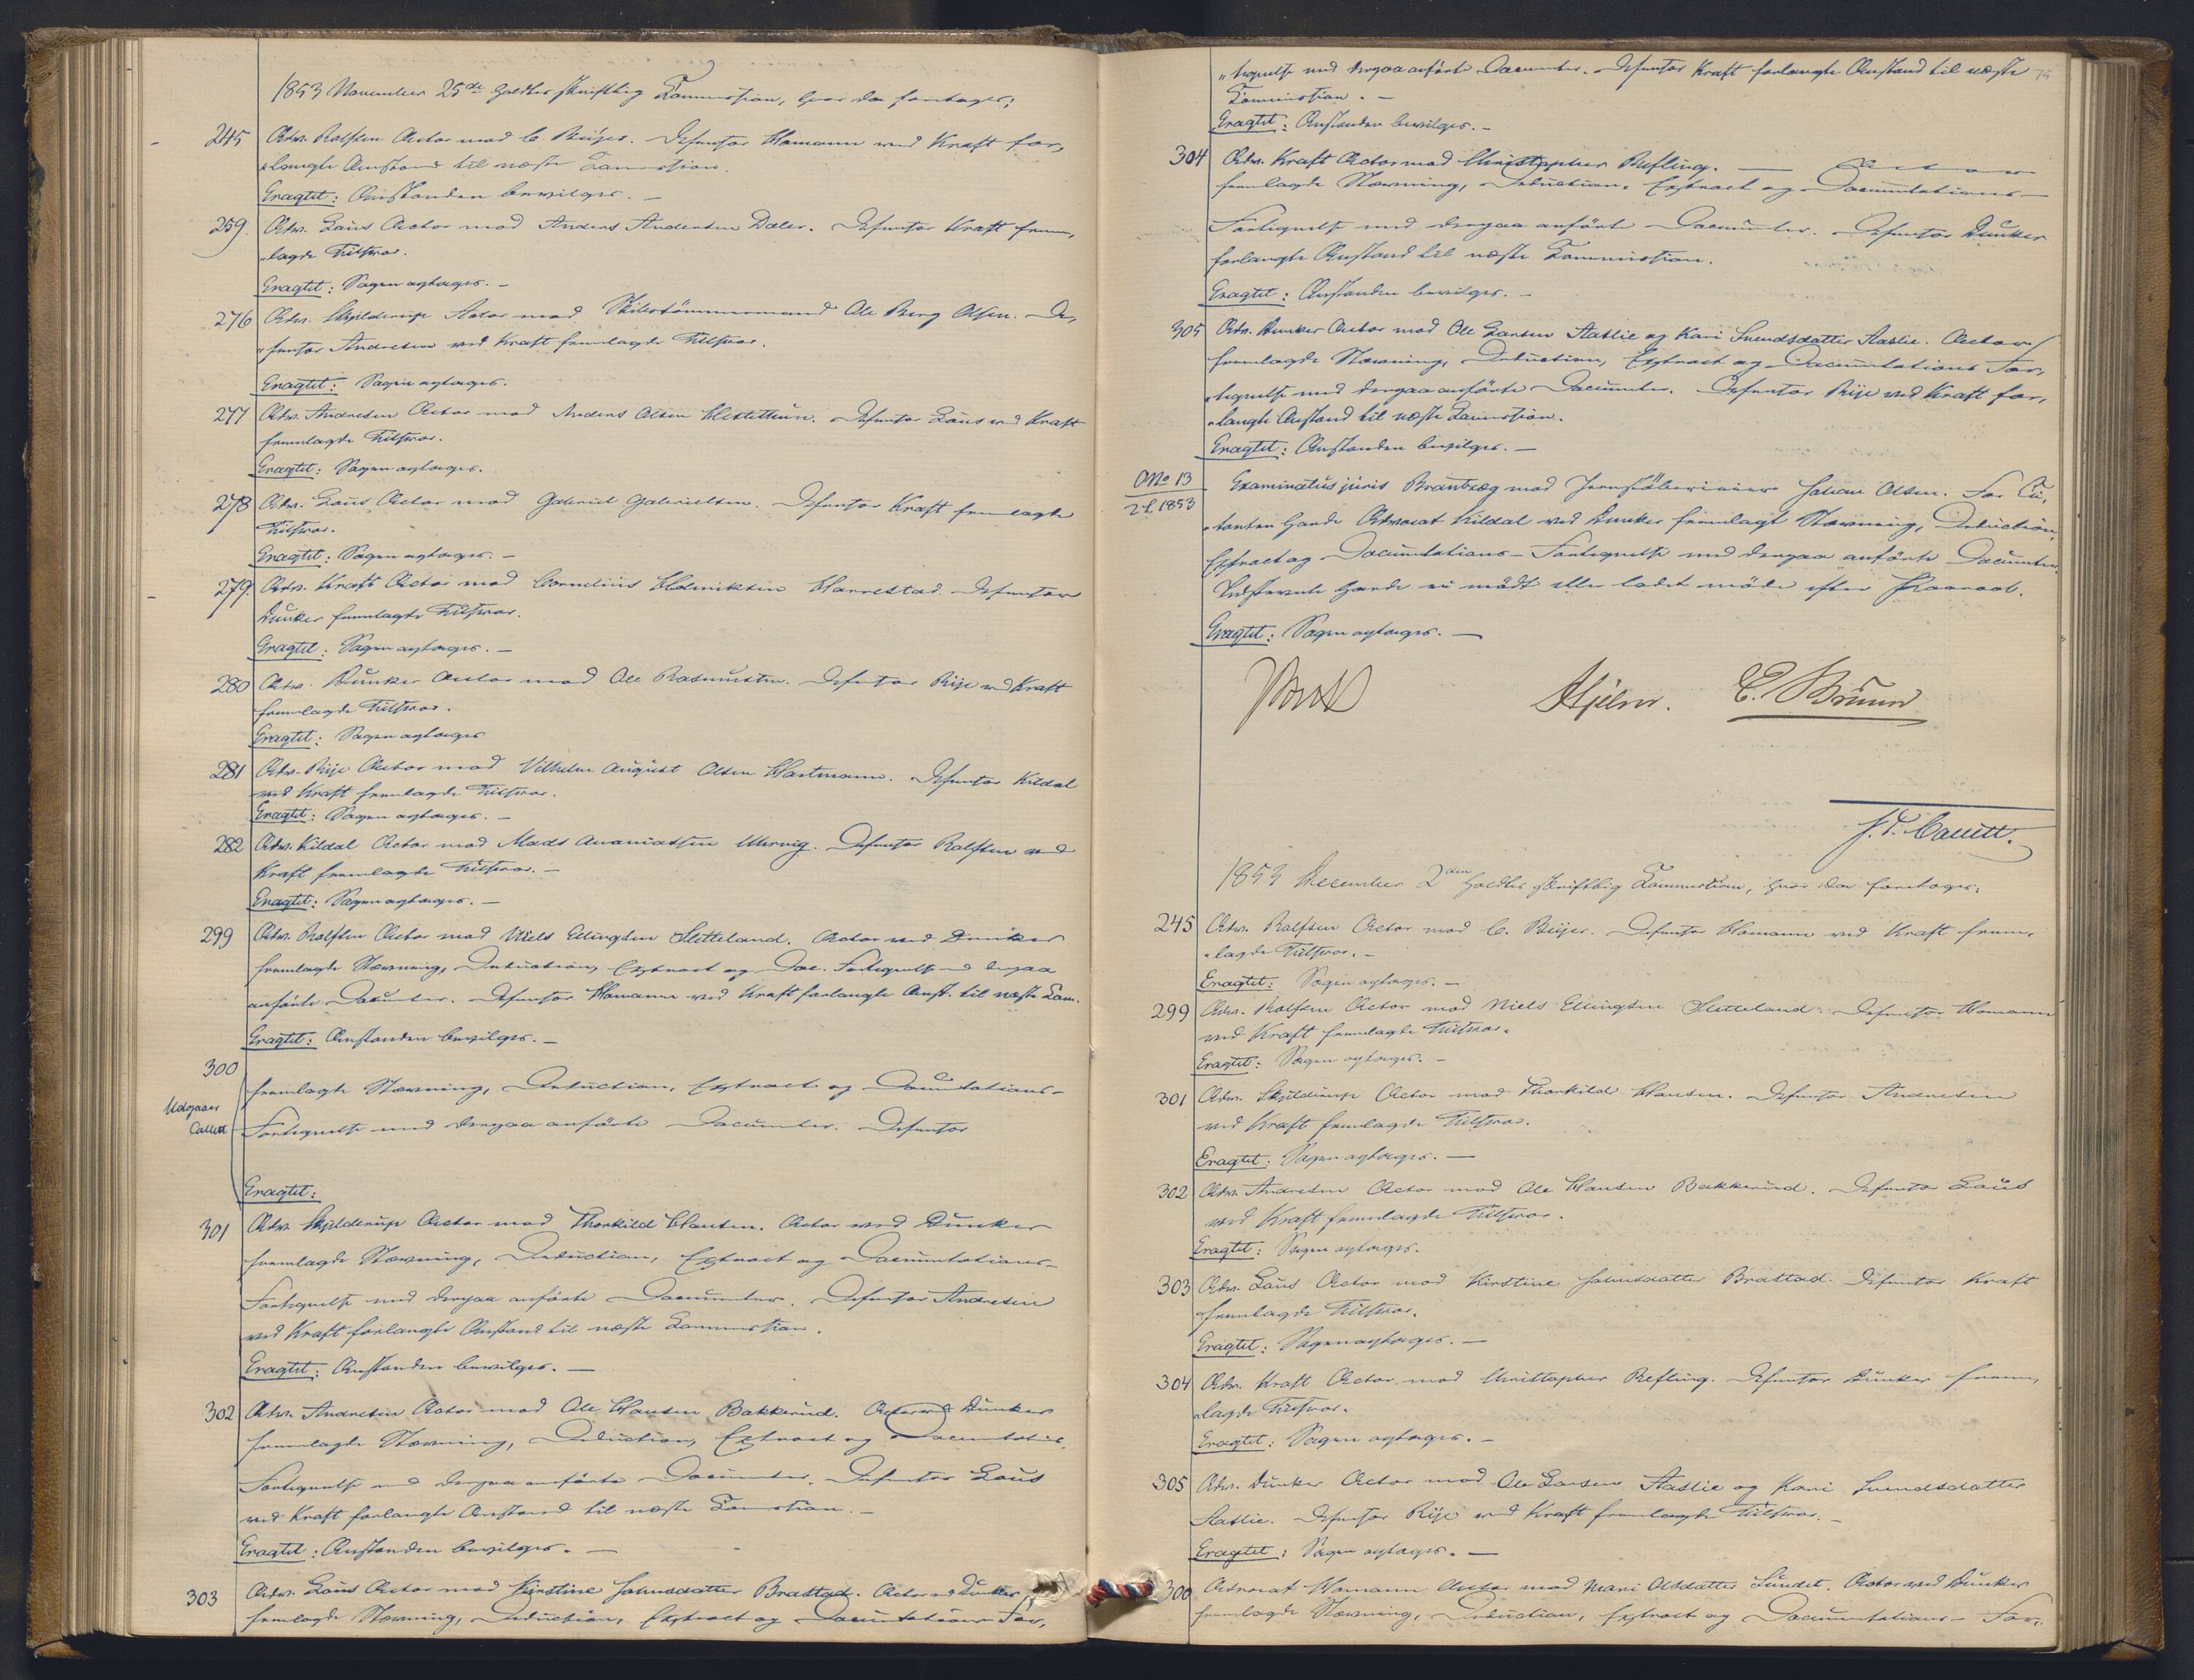 1853 November 25de holdtes skriftlig Commission, hvor da foretoges:
245 Adv. Rolfsen Actor mod C. Beijer. Defensor Homann ved Kraft for„
„langte Anstand til næste Commission.
Eragtet: Anstanden bevilges. —
259. Adv. Laus Actor mod Anders Andersen Daler. Defensor Kraft frem„
„lagde Tilsvar.
Eragtet: Sagen optages. —
276 Adv. Skjilderup Actor mod Skibstömmermand Ole Berg Olsen. De„
„fensor Andresen ved Kraft fremlagde Tilsvar.
Eragtet: Sagen optages.
277 Adv. Andresen Actor mod Anders Olsen. Defensor Laus ved Kraft
fremlagde Tilsvar.
Eragtet: Sagen optages.
278 Adv. Laus Actor mod Gabriel Gabrielsen. Defensor Kraft fremlagde
Tilsvar.
Eragtet: Sagen optages. —
279. Adv. Kraft Actor mod Cornelius Hdenriksen Harrestad. Defensor
Dunker fremlagde Tilsvar.
Eragtet: Sagen optages. —
280 Adv. Dunker Actor mod Ole Rasmussen. Defensor Rije ved Kraft
fremlagde Tilsvar.
Eragtet: Sagen optages
281 Adv. Rije Actor mod Vilhelm August Olsen Hartmann. Defensor Kildal
ved Kraft fremlagde Tilsvar.
Eragtet: Sagen optages. —
282 Adv. Kildal Actor mod Mads Ananiassen. Defensor Rolfsen ved
Kraft fremlagde Tilsvar. —
Eragtet: Sagen optages. —
299 Adv. Rolfsen Actor mod Niels Ellingsen Sletteland. Actor ved Dunker
fremlagde Stævning, Deduction, Extract og Doc. Fortegnelse med derpaa
anförte Documenter. Defensor Homann ved Kraft forlangte Anst. til næste Com.
Eragtet: Anstanden bevilges. —
300
fremlagde Stævning, Deduction, Extract og Documentations-
Udgaaer
Collett
Fortegnelse med derpaa anförte Documenter. Defensor
Eragtet:
301 Adv. Skjilderup Actor mod Thorkild Hansen. Actor ved Dunker
fremlagde Stævning, Deduction, Extract og Documentations-
Fortegnelse med derpaa anförte Documenter. Defensor Andresen
ved Kraft forlangte Anstand til næste Commission.
Eragtet: Anstanden bevilges. —
302 Adv. Andresen Actor mod Ole Hansen Bakkerud. Actor ved Dunker
fremlagde Stævning, Deduction, Extract og Documentations
Fortegnelse med derpaa anförte Documenter. Defensor Laus
ved Kraft forlangte Anstand til næste Commission. —
Eragtet: Anstanden bevilges. —
303 Adv. Laus Actor mod Kirstine Johnsdatter Brastad. Actor ved Dunker
fremlagde Stævning, Deduction, Extract og Documentations For„
„tegnelse med derpaa anförte Documenter. Defensor Kraft forlangte Anstand til næste 75
Commission. —
Eragtet: Anstanden bevilges. —
304 Adv. Kraft Actor mod Christopher Refling. — Actor
fremlagde Stævning, Deduction, Extract og Documentations-
Fortegnelse med derpaa anförte Documenter. Defensor Dunker
forlangte Anstand til næste Commission.
Eragtet: Anstanden bevilges. —
305 Adv. Dunker Actor mod Ole Larsen Aaslie og Kari Svendsdatter Aaslie. Actor
fremlagde Stævning, Deduction, Extract og Documentations For„
„tegnelse med derpaa anförte Documenter. Defensor Rije ved Kraft for„
„langte Anstand til næste Commission.
Eragtet: Anstanden bevilges. —
No 13
2 S. 1853
Examinatus juris Brantzæg mod Johan Olsen. For Ci„
„tanten havde Advocat Kildal ved Dunker fremlagt Stævning, Deduction,
Extract og Documentations-Fortegnelse med derpaa anförte Documenter.
Indstevnte havde ei mödt eller ladet möde efter Paaraab.
Eragtet: Sagen optages. —
Hjelm. C. Bruun
J. C. Collett.
1853 December 2den holdtes skriftlig Commission, hvor da foretoges:
245 Adv. Rolfsen Actor mod C. Beijer. Defensor Homann ved Kraft frem„
„lagde Tilsvar. —
Eragtet: Sagen optages. —
299 Adv. Rolfsen Actor mod Niels Ellingsen Sletteland. Defensor Homann
ved Kraft fremlagde Tilsvar.
Eragtet: Sagen optages. —
301 Adv. Skjilderup Actor mod Thorkild Hansen. Defensor Andresen
ved Kraft fremlagde Tilsvar.
Eragtet: Sagen optages. —
302 Adv. Andresen Actor mod Ole Hansen Bakkerud. Defensor Laus
ved Kraft fremlagde Tilsvar.
Eragtet: Sagen optages.
303 Adv. Laus Actor mod Kirstine Johnsdatter Brastad. Defensor Kraft
fremlagde Tilsvar.
Eragtet: Sagen optages. —
304 Adv. Kraft Actor mod Christopher Refling. Defensor Dunker frem„
„lagde Tilsvar.
Eragtet: Sagen optages. —
305 Adv. Dunker Actor mod Ole Larsen Aaslie og Kari Svendsdatter
Aaslie. Defensor Rije ved Kraft fremlagde Tilsvar. —
Eragtet: Sagen optages. —
300 Advocat Homann Actor mod Mari Olsdatter Sundet. Actor ved Dunker
fremlagde Stævning, Deduction, Extract og Documentations-For„